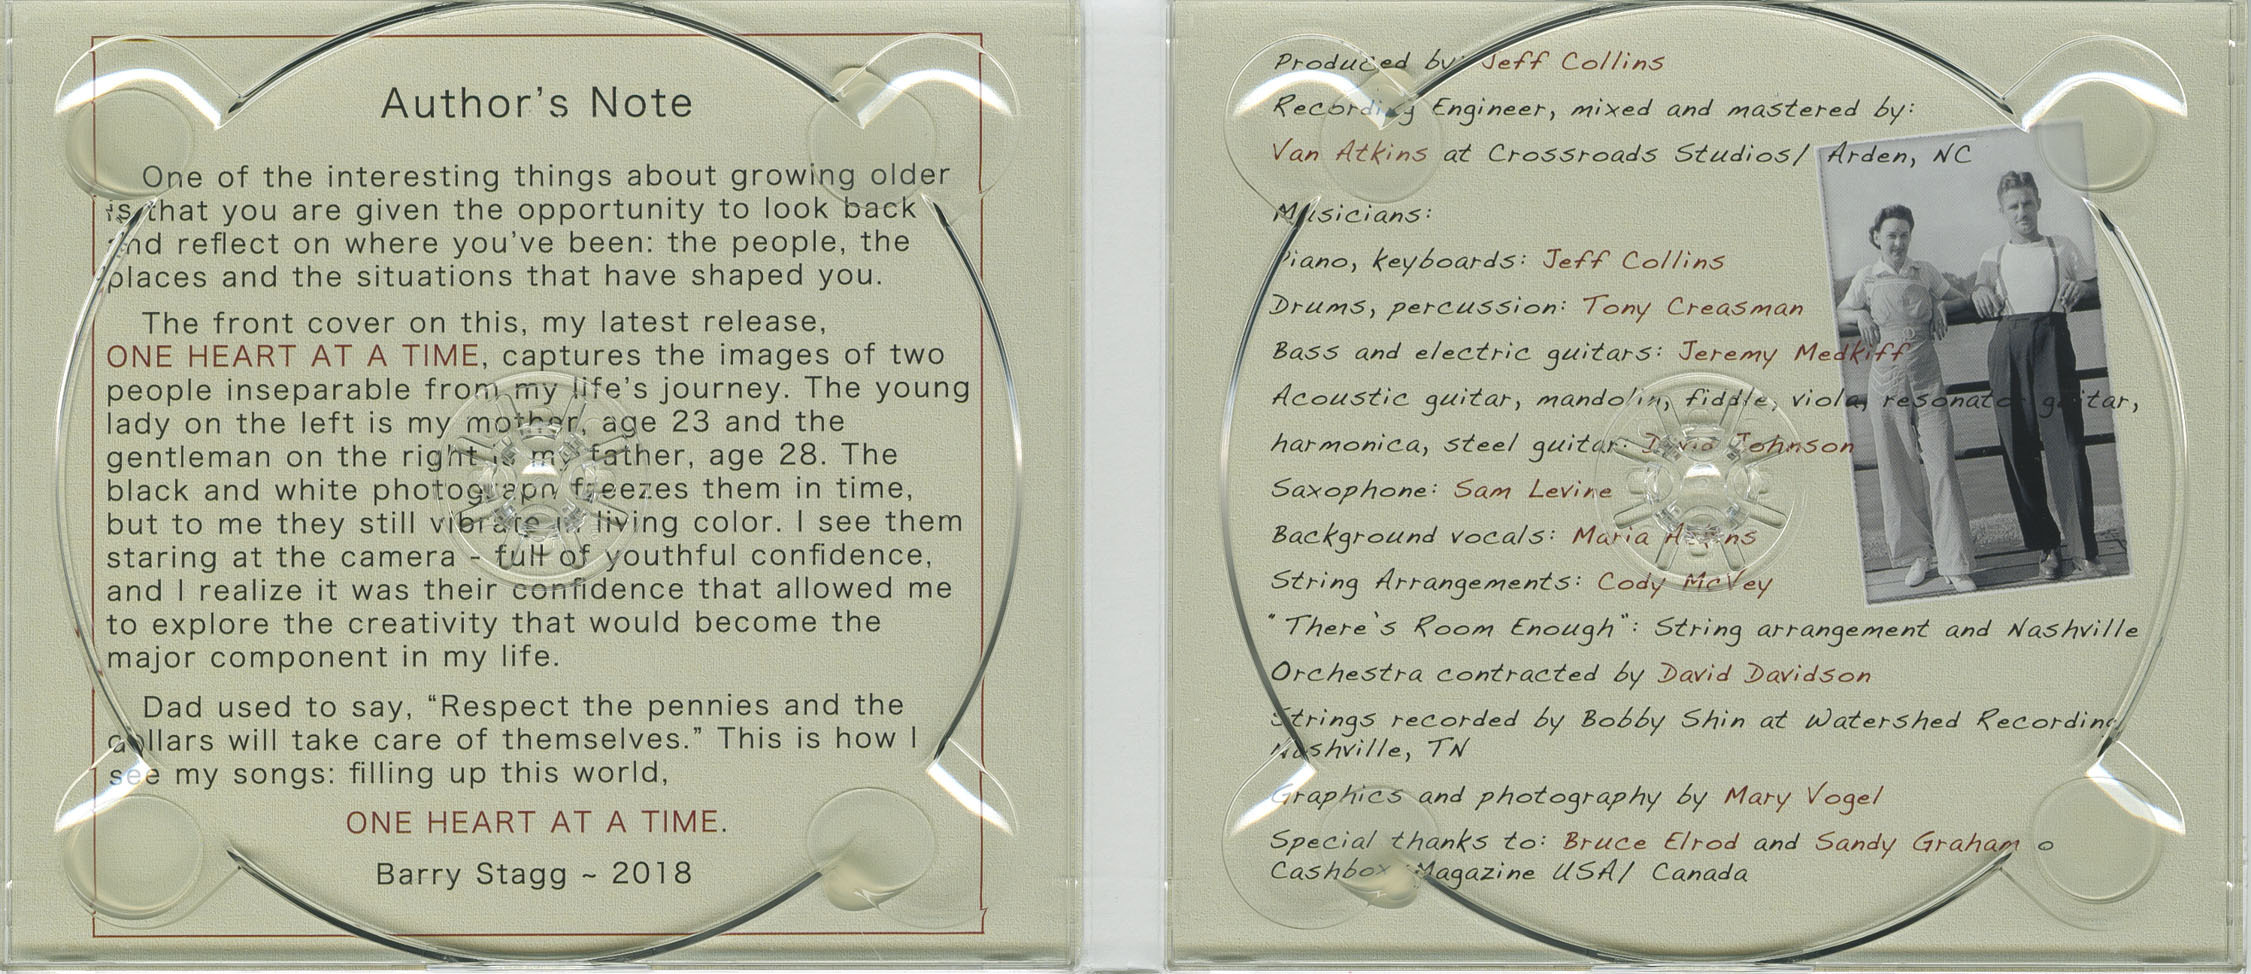 Author's Note
One of the interesting things about growing older
is that you are given the opportunity to look back
and reflect on where you've been: the people, the
places and the situations that have shaped you.
The front cover on this, my latest release,
ONE HEART AT A TIME, captures the images of two
people inseparable from my life's journey. The young
lady on the left is my mother, age 23 and the
gentleman on the right is my father, age 28. The
black and white photograph freezes them in time,
but to me they still vibrate in living color. I see them
staring at the camera - full of youthful confidence,
and I realize it was their confidence that allowed me
to explore the creativity that would become the
major component in my life.
Dad used to say, “Respect the pennies and the
dollars will take care of themselves.” This is how I
see my songs: filling up this world,
ONE HEART AT A TIME.
Barry Stagg ~ 2018
Produced by: Jeff Collins
Recording Engineer, mixed and mastered by:
Van Atkins at Crossroads Studios/ Arden, NC
Musicians:
Piano, keyboards: Jeff Collins
Drums, percussion: Tony Creasman
Bass and electric guitars: Jeremy Medkiff
Acoustic guitar, mandolin, fiddle, viola, resonator guitar,
harmonica, steel guitar: David Johnson
Saxophone: Sam Levine
Background vocals: Maria
String Arrangements: Cody McVey
"There's Room Enough": String arrangement and Nashville
Orchestra contracted by David Davidson
Strings recorded by Bobby Shin at Watershed Recording
Nashville, TN
Graphics and photography by Mary Vogel
Special thanks to: Bruce Elrod and Sandy Graham o
Cashbox Magazine USA/ Canada